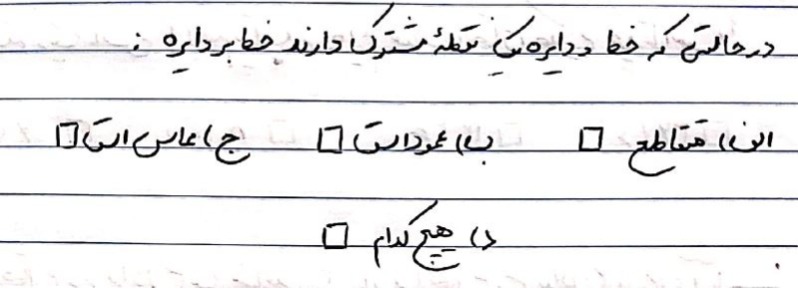 در حالتی که خط و دایره یک نقطهٔ مشترک دارند خط بر دایره :
الف) متقاطع □ ب) عمود است □ ج) مماس است □
د) هیچ کدام □